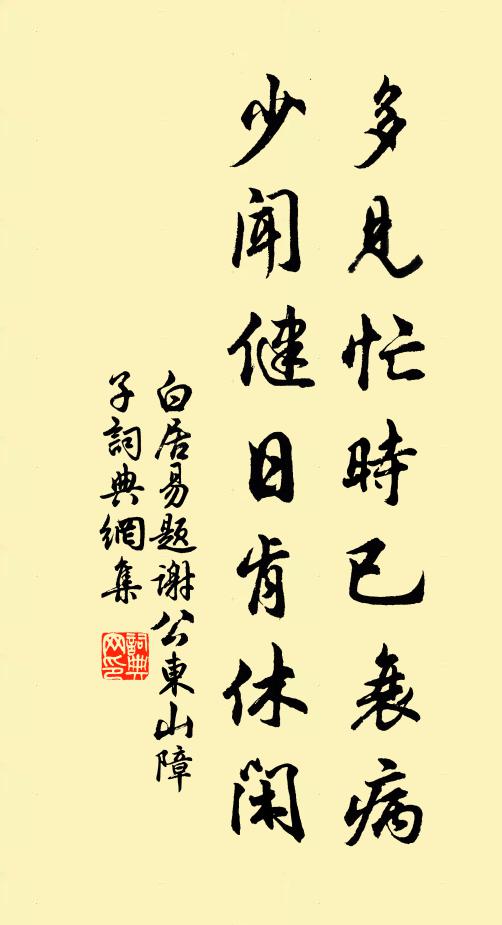 多見忙時已衰病
少聞健日肯休閑
白居易題謝公東山障
子詞典網集
詞典
网印